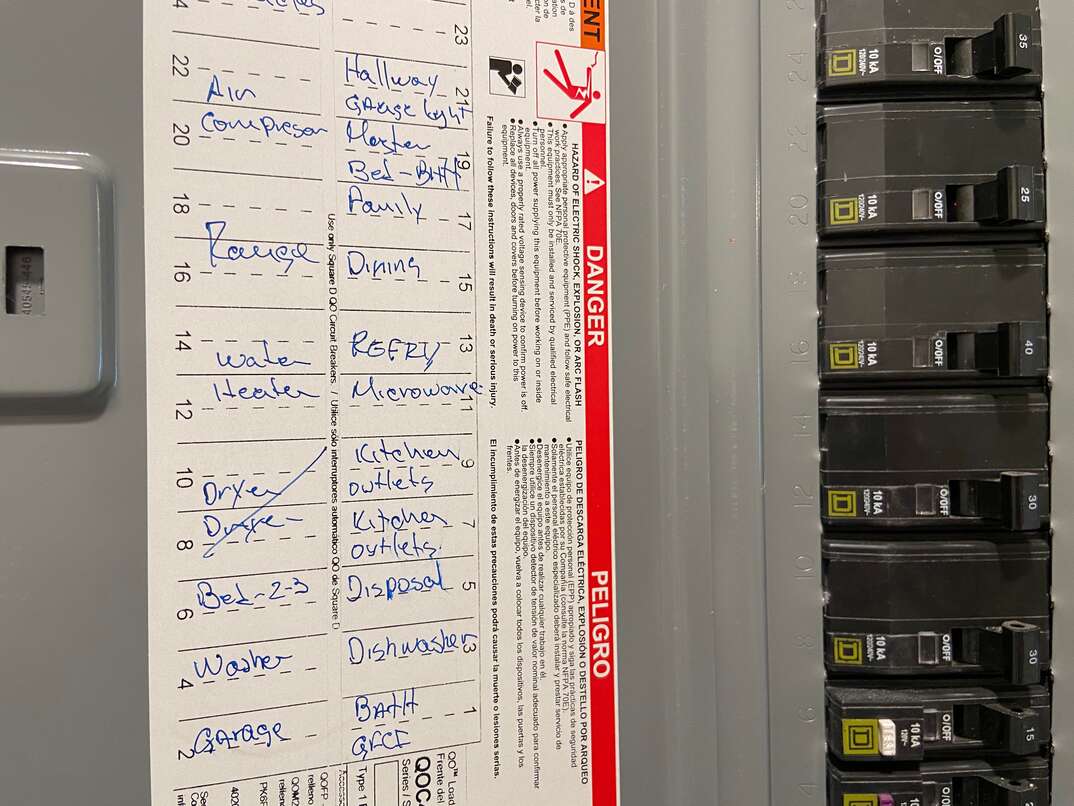 24
22
Air
20
Compresor
18
Range
16
14
Water
12
Heater
10
Dryer
8
6
Bed-2-3
4
Washer
2
Garage
23
Hallway
21
GArage Light
19
Master
Bed-BATH
17
Family
15
Dining
13
REFRY
11
Microwave
9
Kitchen
outlets
7
Kitchen
outlets.
5
Disposal
3
Dishwasher
1
BAtH
GFCI
Use only Square D QO Circuit Breakers. / Utilice sólo interruptores automático QO de Square D.
DANGER
HAZARD OF ELECTRIC SHOCK, EXPLOSION, OR ARC FLASH
● Apply appropriate personal protective equipment (PPE) and follow safe electrical
work practices. See NFPA 70E.
● This equipment must only be installed and serviced by qualified electrical
personnel.
● Turn off all power supplying this equipment before working on or inside
equipment.
● Always use a properly rated voltage sensing device to confirm power is off.
● Replace all devices, doors and covers before turning on power to this
equipment.
Failure to follow these instructions will result in death or serious injury.
PELIGRO
PELIGRO DE DESCARGA ELÉCTRICA, EXPLOSIÓN O DESTELLO POR ARQUEO
● Utilice equipo de protección personal (EPP) apropiado y siga las prácticas de seguridad
eléctrica establecidas por su Compañía (consulte la norma NFPA 70E).
● Solamente el personal eléctrico especializado deberá instalar y prestar servicio de
mantenimiento a este equipo.
● Desenergice el equipo antes de realizar cualquier trabajo en él.
● Siempre utilice un dispositivo detector de tensión de valor nominal adecuado para confirmar
la desenergización del equipo.
● Antes de energizar el equipo, vuelva a colocar todos los dispositivos, las puertas y los
frentes.
El incumplimiento de estas precauciones podrá causar la muerte o lesiones serias.
QO™ Load
Frente del
QOC
Series / S
Type 1
24
22
20
18
16
14
12
10
8
6
4
35
O/OFF
10 kA
120/240V~
25
O/OFF
10 kA
120/240V~
40
O/OFF
10 kA
120/240V~
30
O/OFF
10 kA
120/240V~
30
O/OFF
10 kA
120/240V~
15
O/OFF
10 kA
120V~
TEST